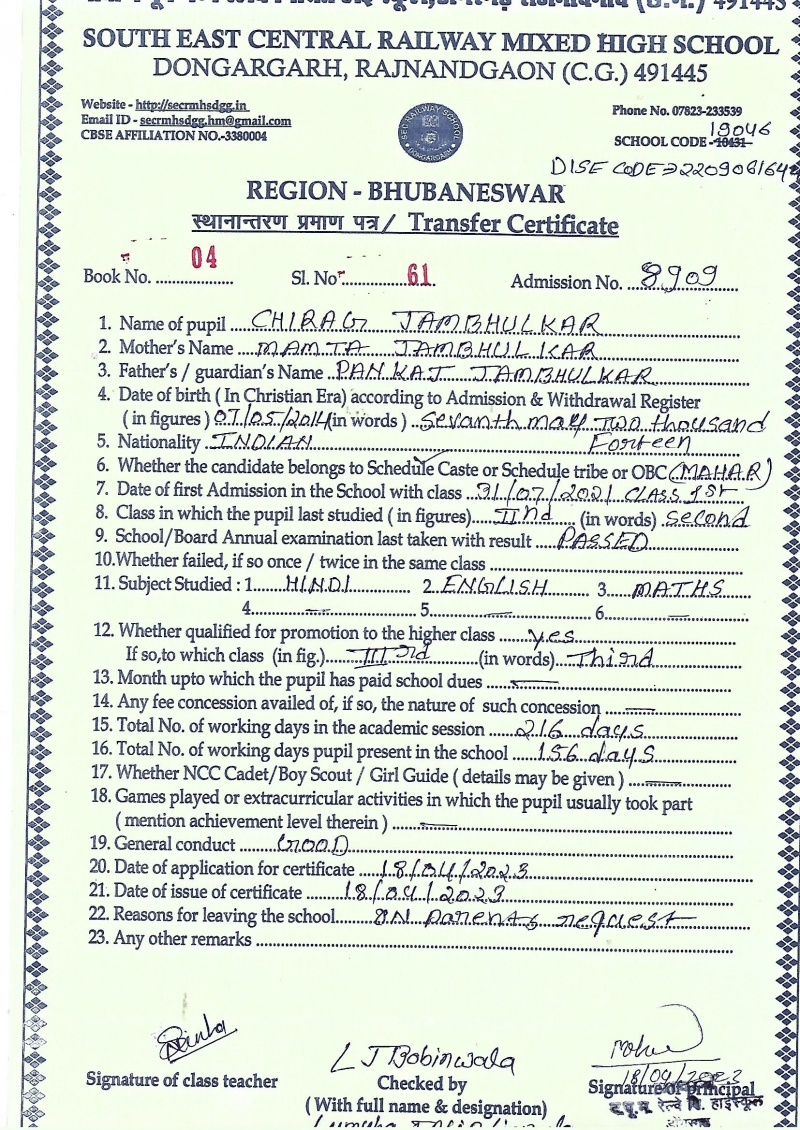 SOUTH EAST CENTRAL RAILWAY MIXED HIGH SCHOOL
DONGARGARH, RAJNANDGAON (C.G.) 491445
Website - http://secrmhsdgg.in
Email ID - secrmhsdgg.hm@gmail.com
CBSE AFFILIATION NO.-3380004
Phone No. 07823-233539
19046
SCHOOL CODE -10431-
DISE CODE → 2209081642
SEC RAILWAY SCHOOL
DONGARGARH
REGION - BHUBANESWAR
स्थानान्तरण प्रमाण पत्र / Transfer Certificate
Book No. 04 Sl. No 61 Admission No. 8909
1. Name of pupil CHIRAG JAMBHULKAR
2. Mother's Name MAMTA JAMBHULKAR
3. Father's / guardian's Name PANKAJ JAMBHULKAR
4. Date of birth ( In Christian Era) according to Admission & Withdrawal Register
( in figures ) 07/05/2014 (in words ) sevanth may two thousand
Forteen
5. Nationality INDIAN
6. Whether the candidate belongs to Schedule Caste or Schedule tribe or OBC (MAHAR)
7. Date of first Admission in the School with class 31/07/2021 CLASS 1st
8. Class in which the pupil last studied ( in figures) IInd (in words) second
9. School/Board Annual examination last taken with result PASSED
10. Whether failed, if so once / twice in the same class
11. Subject Studied : 1. HINDI 2. ENGLISH 3. MATHS
4. — 5. — 6. —
12. Whether qualified for promotion to the higher class yes
If so,to which class (in fig.) IIIrd (in words) Third
13. Month upto which the pupil has paid school dues —
14. Any fee concession availed of, if so, the nature of such concession —
15. Total No. of working days in the academic session 216 days
16. Total No. of working days pupil present in the school 156 days
17. Whether NCC Cadet/Boy Scout / Girl Guide ( details may be given ) —
18. Games played or extracurricular activities in which the pupil usually took part
( mention achievement level therein ) —
19. General conduct GOOD
20. Date of application for certificate 18/04/2023
21. Date of issue of certificate 18/04/2023
22. Reasons for leaving the school ON parents request
23. Any other remarks
L J Bobinwala
18/04/2023
Signature of class teacher Checked by Signature of principal
(With full name & designation)
द.पू.म. रेल्वे मि. हाईस्कूल